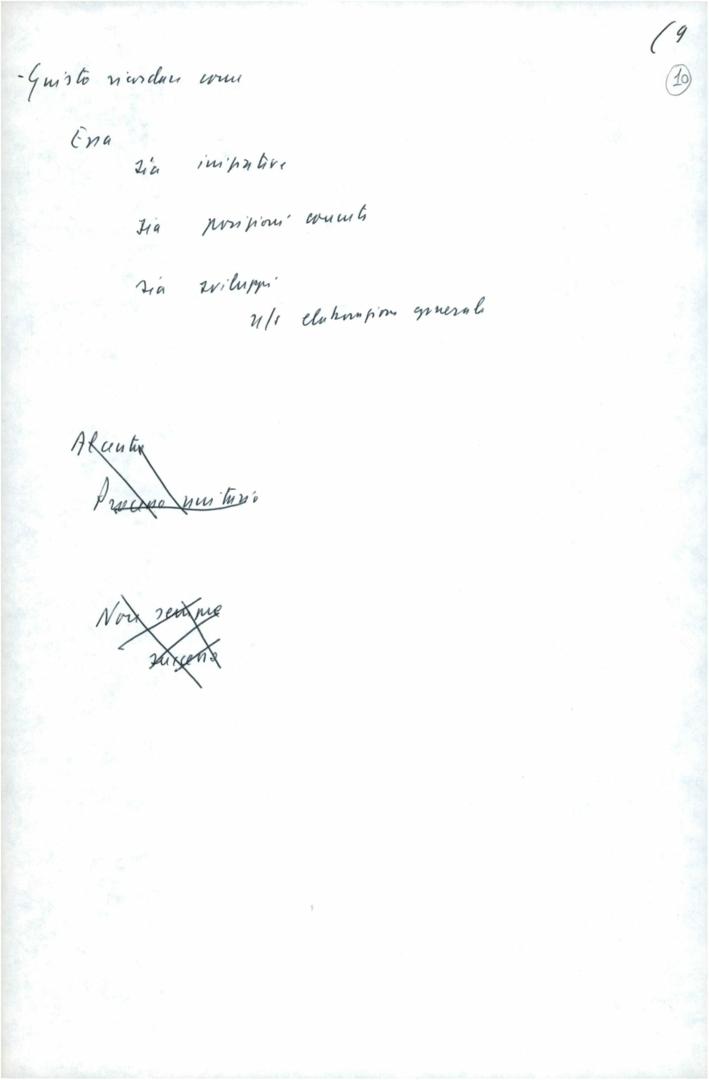 (9
10
- Giusto ricordare come
Essa
sia iniziative
sia posizioni concrete
sia sviluppi
n/s elaborazione generale
Processo unitario
Non sempre
successo